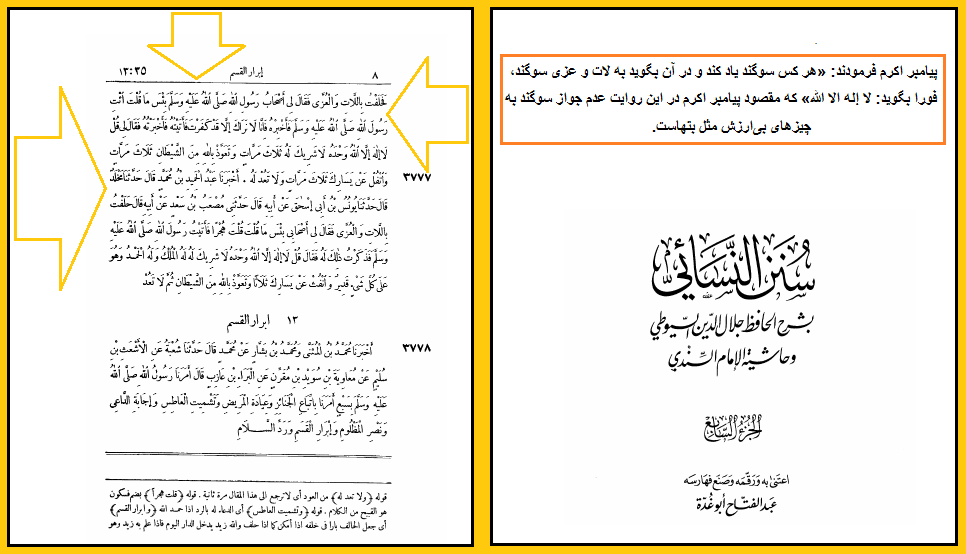 پیامبر اکرم فرمودند: «هر کس سوگند یاد کند و در آن بگوید به لات و عزی سوگند،
فورا بگوید: لا إله الا الله» که مقصود پیامبر اکرم در این روایت عدم جواز سوگند به
چیزهای بی‌ارزش مثل بتهاست.
سُنَن النَّسَائي
بشرح الحافظ جلال الدين السيوطي
وحاشية الإمام السِّندي
الجزء السابع
اعتنى به ورقمه وصنع فهارسه
عبد الفتاح أبو غدة
٨ ابرار القسم ١٣:٣٥
فَحَلَفْتُ بِاللَّاتِ وَالْعُزَّى فَقَالَ لِي أَصْحَابُ رَسُولِ اللهِ صَلَّى اللهُ عَلَيْهِ وَسَلَّمَ بِئْسَ مَا قُلْتَ ائْتِ
رَسُولَ اللهِ صَلَّى اللهُ عَلَيْهِ وَسَلَّمَ فَأَخْبِرْهُ فَإِنَّا لَا نَرَاكَ إِلَّا قَدْ كَفَرْتَ فَأَتَيْتُهُ فَأَخْبَرْتُهُ فَقَالَ لِي قُلْ
لَا إِلٰهَ إِلَّا اللهُ وَحْدَهُ لَا شَرِيكَ لَهُ ثَلَاثَ مَرَّاتٍ وَتَعَوَّذْ بِاللهِ مِنَ الشَّيْطَانِ ثَلَاثَ مَرَّاتٍ
٣٧٧٧ وَاتْفُلْ عَنْ يَسَارِكَ ثَلَاثَ مَرَّاتٍ وَلَا تَعُدْ لَهُ . أَخْبَرَنَا عَبْدُ الْحَمِيدِ بْنُ مُحَمَّدٍ قَالَ حَدَّثَنَا مَخْلَدٌ
قَالَ حَدَّثَنَا يُونُسُ بْنُ أَبِي إِسْحٰقَ عَنْ أَبِيهِ قَالَ حَدَّثَنِي مُصْعَبُ بْنُ سَعْدٍ عَنْ أَبِيهِ قَالَ حَلَفْتُ
بِاللَّاتِ وَالْعُزَّى فَقَالَ لِي أَصْحَابِي بِئْسَ مَا قُلْتَ قُلْتَ هُجْرًا فَأَتَيْتُ رَسُولَ اللهِ صَلَّى اللهُ عَلَيْهِ
وَسَلَّمَ فَذَكَرْتُ ذٰلِكَ لَهُ فَقَالَ قُلْ لَا إِلٰهَ إِلَّا اللهُ وَحْدَهُ لَا شَرِيكَ لَهُ لَهُ الْمُلْكُ وَلَهُ الْحَمْدُ وَهُوَ
عَلَى كُلِّ شَيْءٍ قَدِيرٌ وَانْفُثْ عَنْ يَسَارِكَ ثَلَاثًا وَتَعَوَّذْ بِاللهِ مِنَ الشَّيْطَانِ ثُمَّ لَا تَعُدْ
١٣ ابرار القسم
٣٧٧٨ أَخْبَرَنَا مُحَمَّدُ بْنُ الْمُثَنَّى وَمُحَمَّدُ بْنُ بَشَّارٍ عَنْ مُحَمَّدٍ قَالَ حَدَّثَنَا شُعْبَةُ عَنِ الْأَشْعَثِ بْنِ
سُلَيْمٍ عَنْ مُعَاوِيَةَ بْنِ سُوَيْدِ بْنِ مُقَرِّنٍ عَنِ الْبَرَاءِ بْنِ عَازِبٍ قَالَ أَمَرَنَا رَسُولُ اللهِ صَلَّى اللهُ
عَلَيْهِ وَسَلَّمَ بِسَبْعٍ أَمَرَنَا بِاتِّبَاعِ الْجَنَائِزِ وَعِيَادَةِ الْمَرِيضِ وَتَشْمِيتِ الْعَاطِسِ وَإِجَابَةِ الدَّاعِي
وَنَصْرِ الْمَظْلُومِ وَإِبْرَارِ الْقَسَمِ وَرَدِّ السَّلَامِ
قوله ﴿ولا تعد له﴾ من العود أى لا ترجع الى هذا المقال مرة ثانية . قوله ﴿قلت هجراً﴾ بضم فسكون
هو القبيح من الكلام . قوله ﴿وتشميت العاطس﴾ أى الدعاء له بالرد اذا حمد الله ﴿وابرار القسم﴾
أى جعل الحالف بارا فى حلفه اذا أمكن كما اذا حلف والله زيد يدخل الدار اليوم فاذا علم به زيد وهو